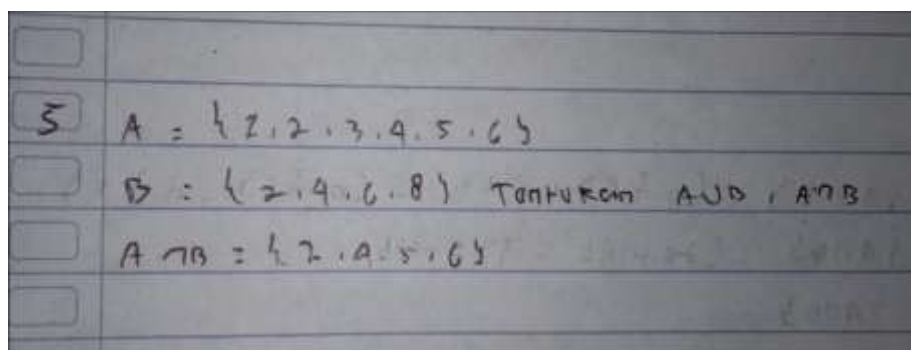 5 A = { 1, 2, 3, 4, 5, 6 }
B = { 2, 4, 6, 8 } Tentukan A∪B, A∩B
A∩B = { 2, 4, 5, 6 }